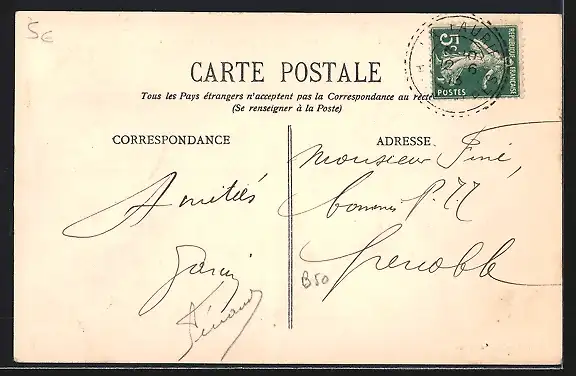 5€
CARTE POSTALE
Tous les Pays étrangers n'acceptent pas la Correspondance au recto
(Se renseigner à la Poste)
5c
REPUBLIQUE FRANÇAISE
POSTES
CORRESPONDANCE
ADRESSE
Amitiés
Monsieur Finé,
P.
Grenoble
B50